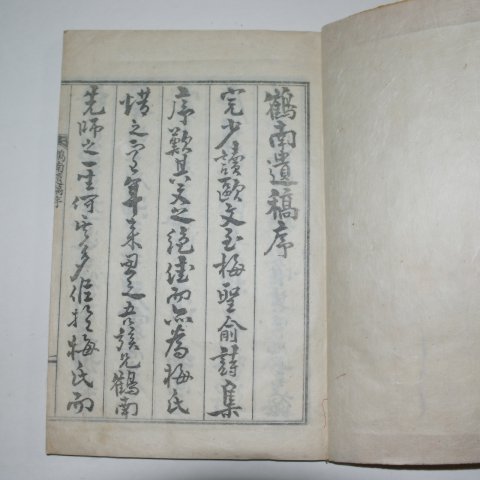 鶴南遺稿序
完少讀歐文至梅聖俞詩集
序歎其文之絕佳而亦爲梅氏
惜之年來思之吾族兄鶴南
先師之一生何其多似於梅氏而
鶴南遺稿序